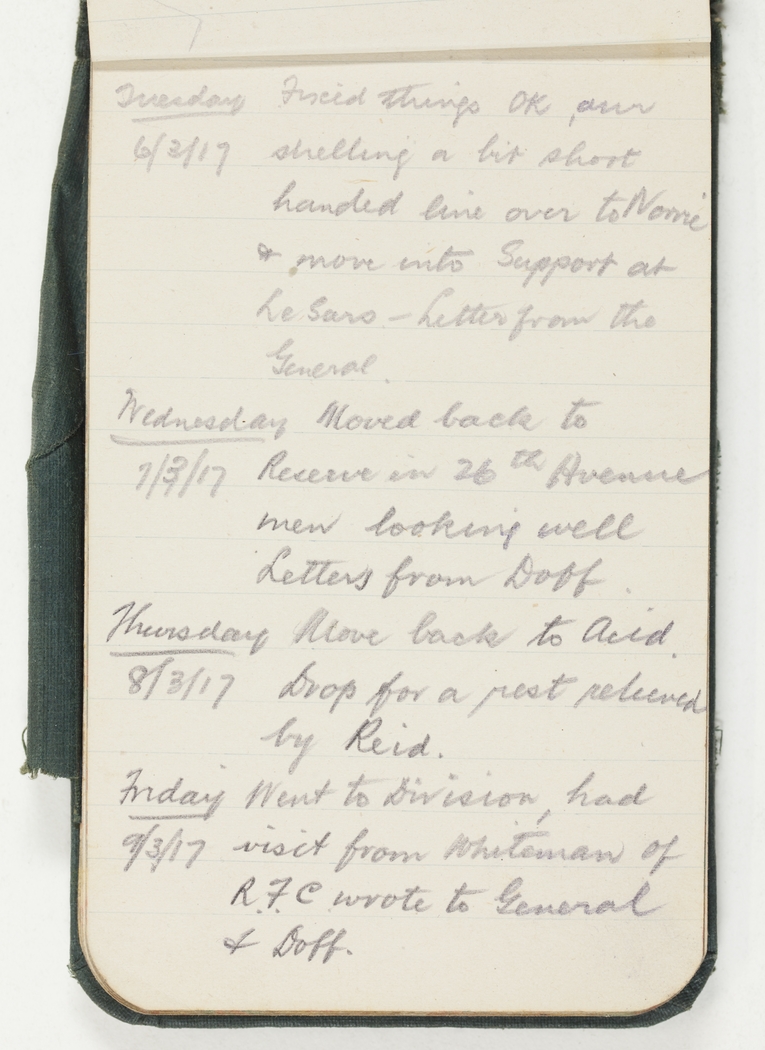 Tuesday Fixed things OK, our
6/3/17 shelling a bit short
handed line over to Norrie
& move into Support at
Le Sars - Letter from the
General.
Wednesday Moved back to
7/3/17 Reserve in 26th Avenue
men looking well
Letters from Doff.
Thursday Move back to Acid.
8/3/17 Drop for a rest relieved
by Reid.
Friday Went to Division, had
9/3/17 visit from Whiteman of
R.F.C wrote to General
& Doff.